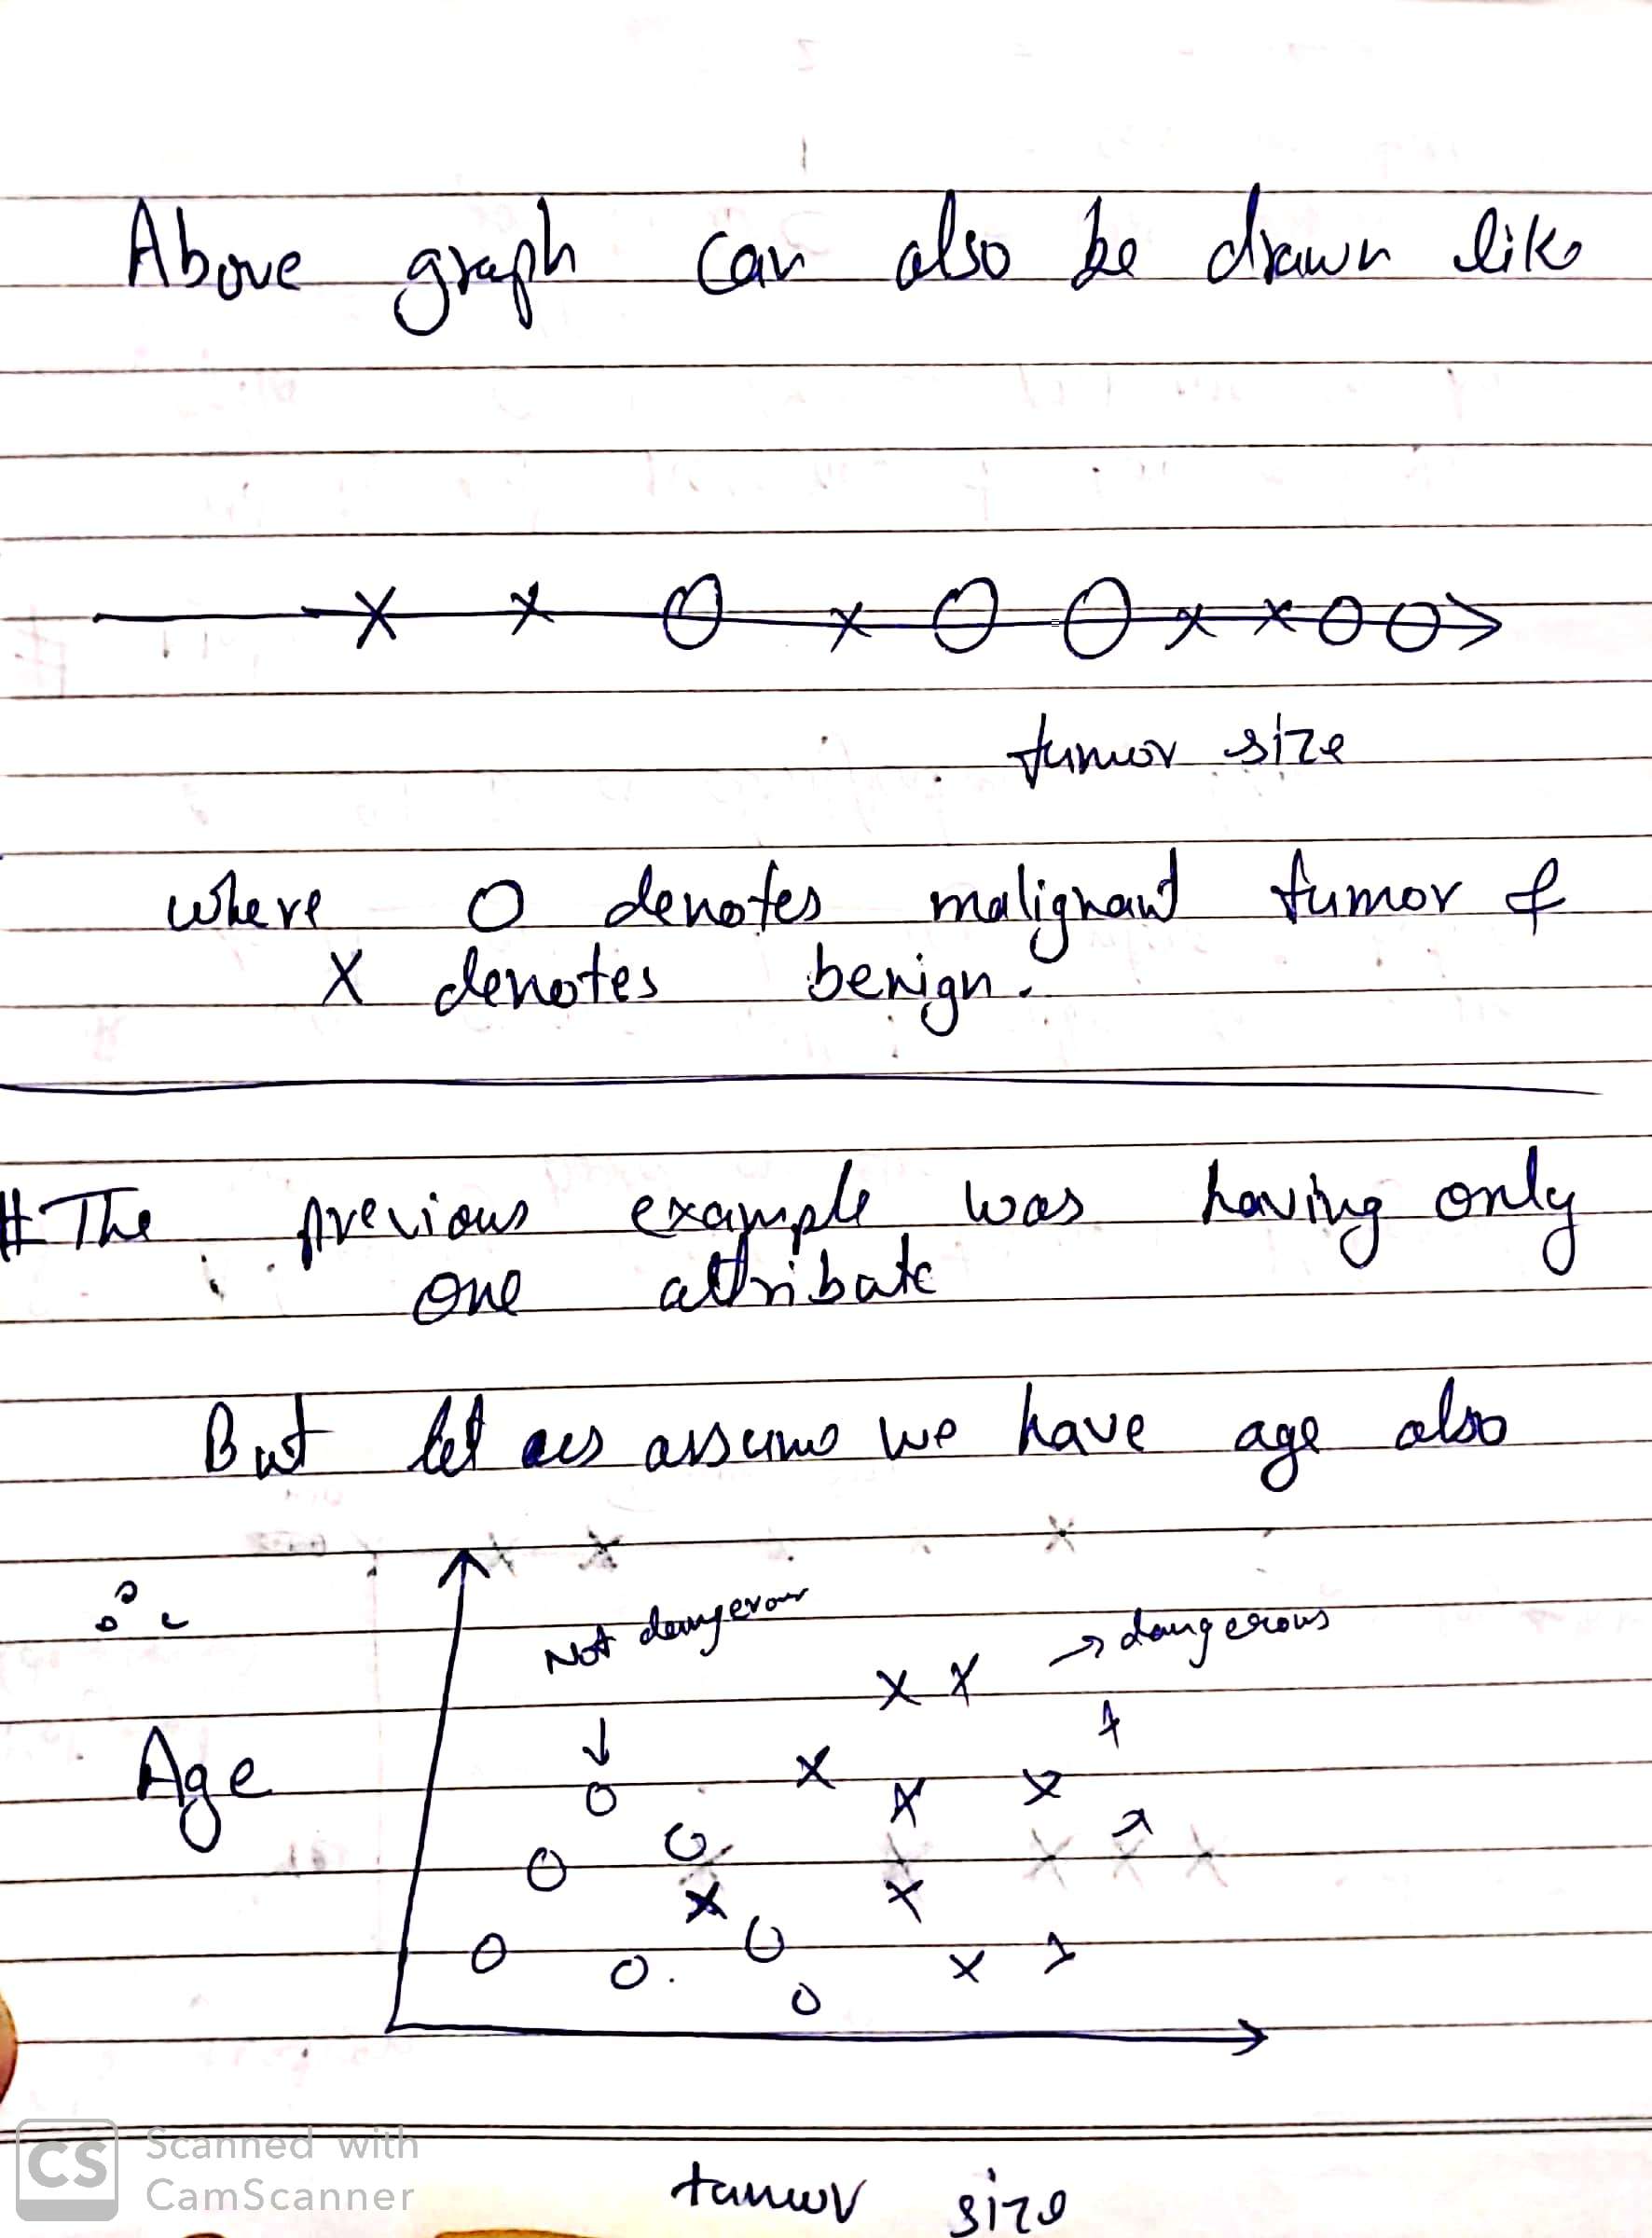 Above graph can also be drawn like
X X O X O O X X O O
tumor size
where O denotes malignant tumor &
X denotes benign.
# The previous example was having only
one attribute
But let us assume we have age also
Not dangerous
→ dangerous
Age
tumor size
CS Scanned with
CamScanner